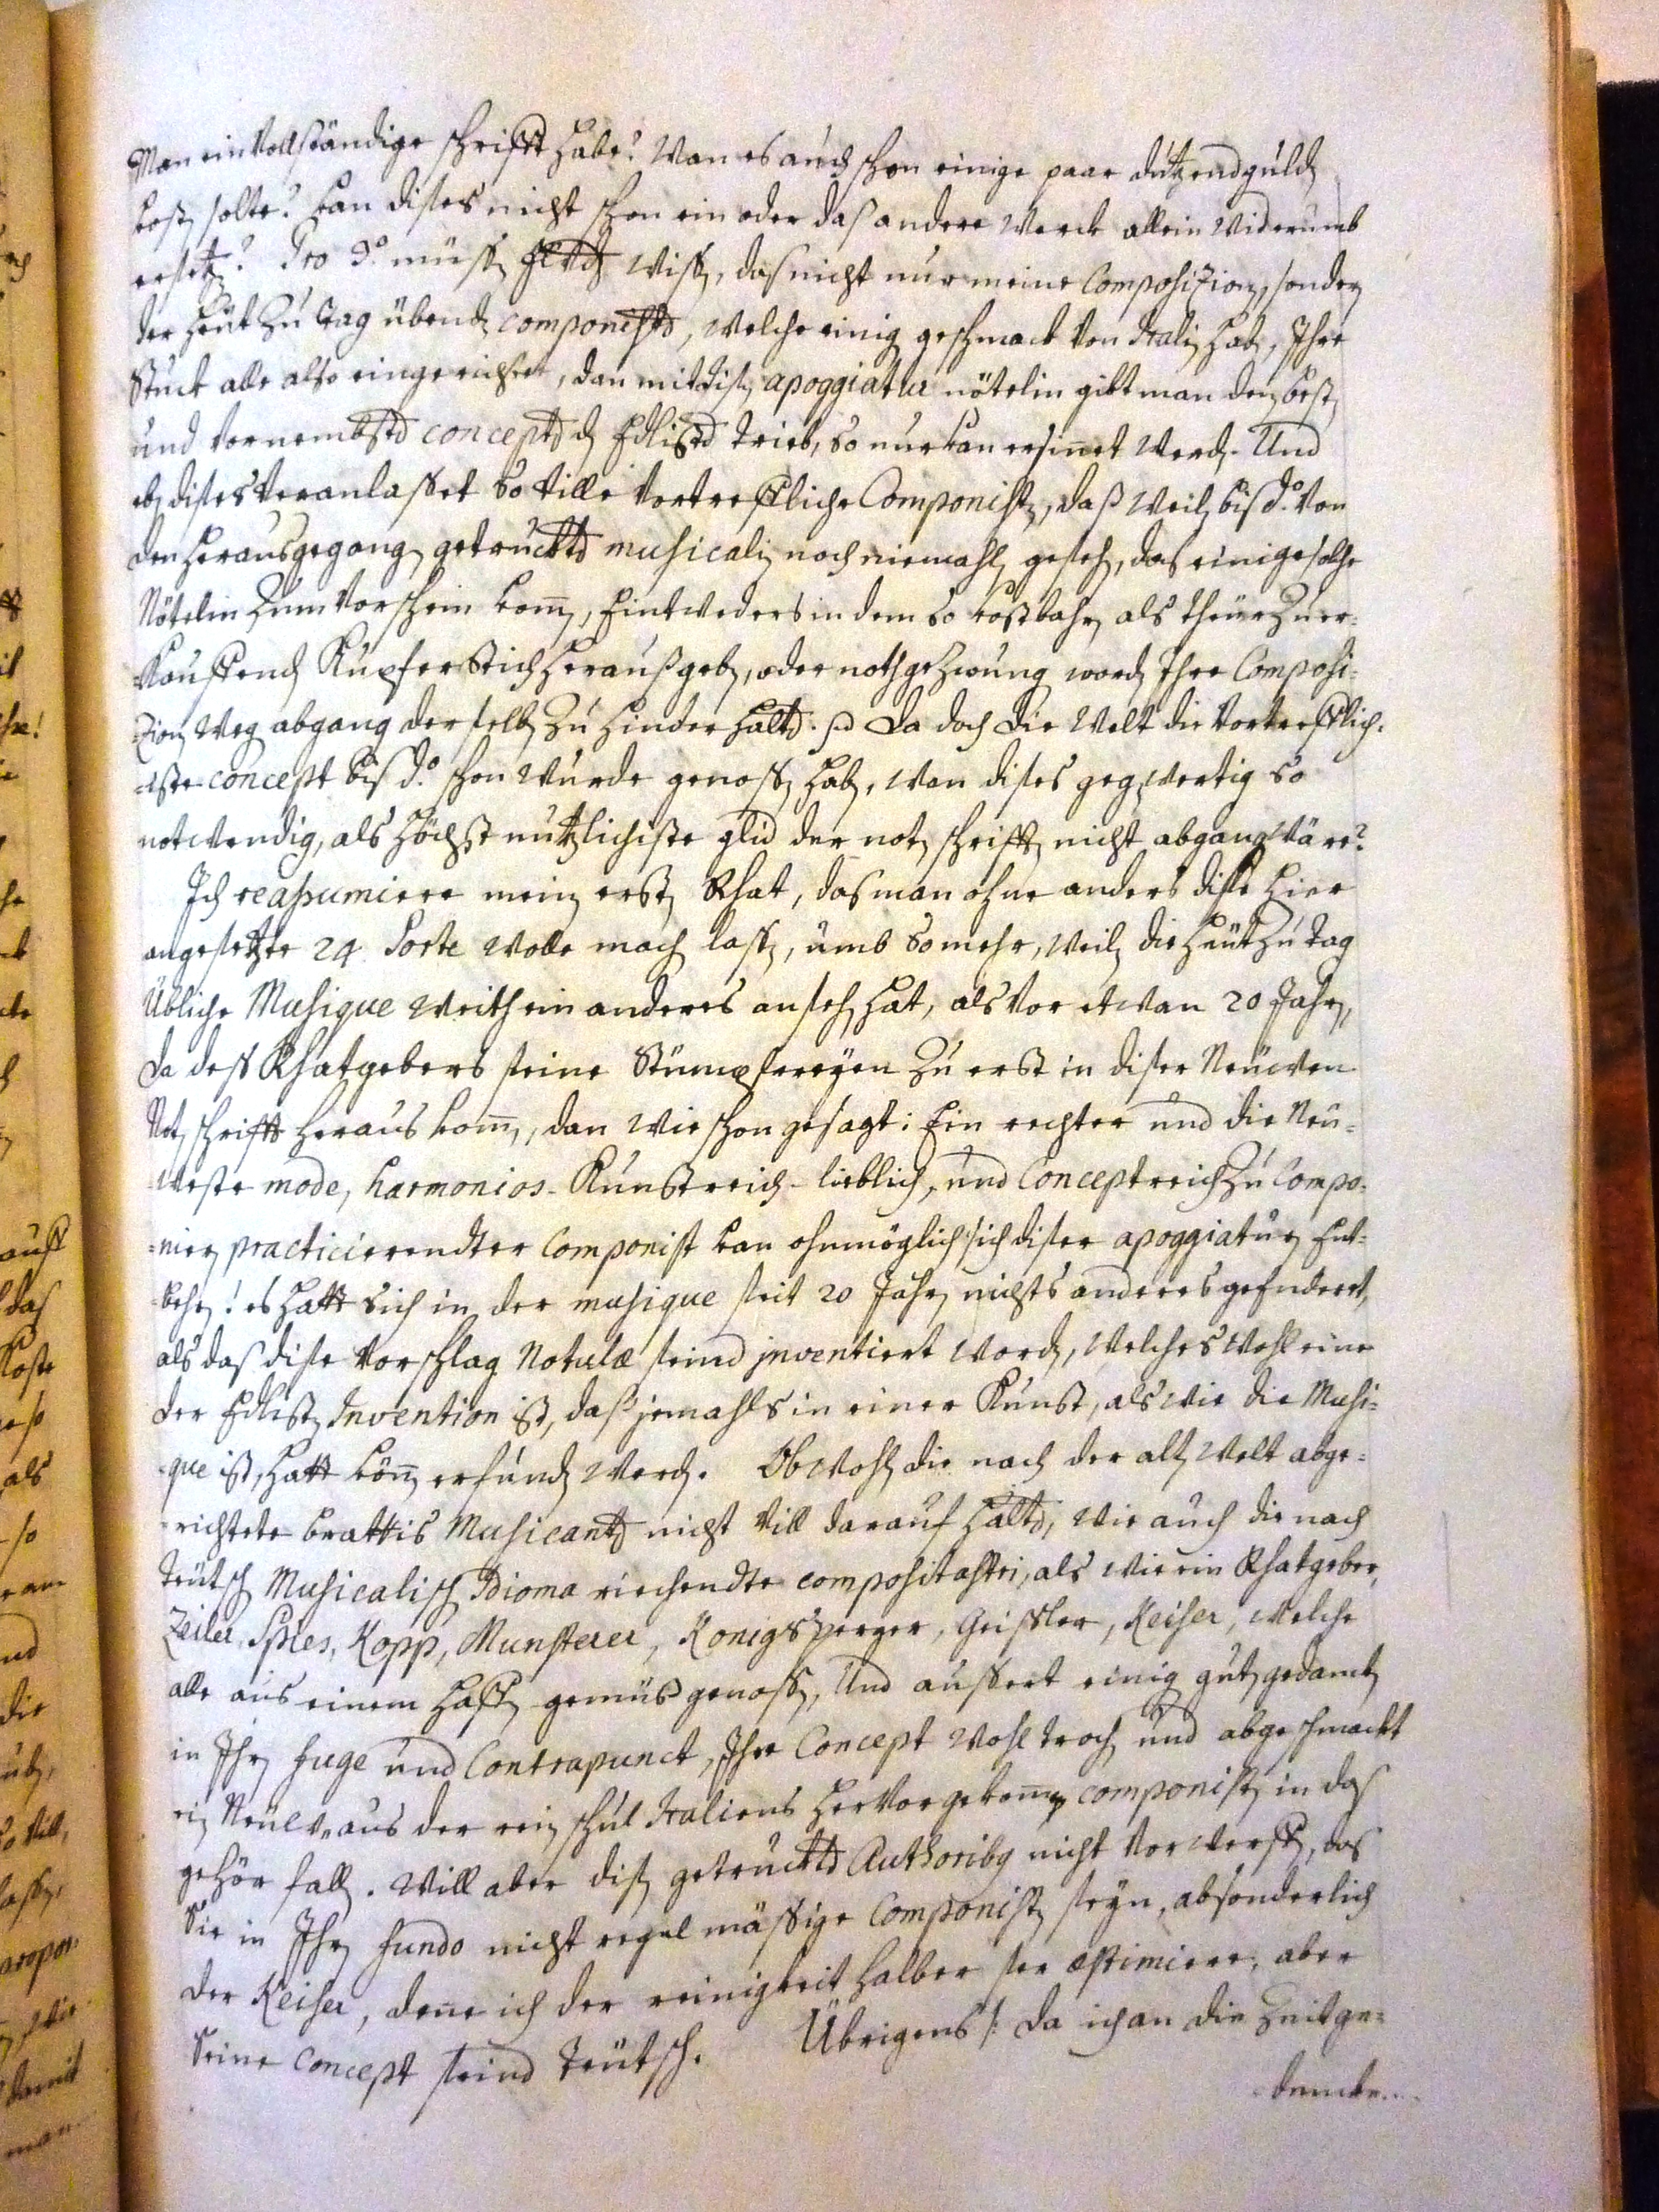 Man ein Vollständige schrifft habe? Wan es auch schon einige paar dutzend guldẽ
kostẽ solte? kan dises nicht schon ein oder das andere Werck allein Widerumb
ersetzẽ? Pro 3.º müssẽ Wissẽ, das nicht nur meine Compositionẽ, sonderẽ
der heut zu Tag übendẽ componistẽ, Welche einigẽ geschmack Von Italiẽ habẽ, Ihre
Stuck alle also eingerichtet, dan mit disẽ apoggiatur nötelin gibt man den bestẽ
und Vornembstẽ conceptẽ dẽ Edlistẽ Trieb, so nur kan ersinet Werdẽ. Und
ebẽ dises Veranlasset so Ville Vortreffliche Componistẽ, daß Weilẽ bis d.º Von
den herausgegangẽ getrucktẽ musicaliẽ noch niemahlẽ gesehẽ, das einige solche
Nötelin Zum Vorschein komẽ, Eintweders in dem so kostbahrẽ als theur Zu er-
Kauffendẽ Kupferstich heraußgebẽ, oder nothgezwungẽ wordẽ Ihre Composi-
-tionẽ Wegẽ abgang derselbẽ Zu hinderhaltẽ. Da doch die Welt die Vortrefflich-
-iste concept bis d.º schon Wurde genossẽ habẽ, Wan dises gegẽwertig so
notwendig, als höchst nutzlichiste glid der notẽ schrifft nicht abgang Wäre?
Ich reassumiere meinẽ erstẽ Rhat, das man ohne anders dise hier
angesetzte 24 Sorte Wolle machẽ lassẽ, umb so mehr, Weilẽ die heut Zu Tag
Übliche Musique Weith ein anderes ansehẽ hat, als Vor etwan 20 Jahrẽ,
da deß Rhatgebers seine Stümpfereyen Zu erst in diser Neuwen
Notẽ schrifft heraus komẽ, dan Wie schon gesagt: Ein rechter und die Neu-
-Weste mode, harmonios- Kunstreich- lieblich, und Conceptreich Zu Compo-
-nierẽ practicierendter Componist kan ohnmöglich sich diser apoggiaturẽ Ent-
-behrẽ! es hatt sich in der musique seit 20 Jahrẽ nichts anderes geEndert,
als das dise Vorschlag Notulæ seind inventiert Wordẽ, Welches Wohl eine
der Edlistẽ Invention ist, daß jemahls in einer Kunst, als Wie die Musi-
-que ist, hatt könẽ erfundẽ Werdẽ. Obwohlẽ die nach der altẽ Welt abge-
-richtete brattis Musicantẽ nicht Vill darauf haltẽ, Wie auch die nach
Teutsch Musicalischẽ Idioma riechendte compositastri, als Wie ein Rhatgeber,
Zeiler, Spies, Kopp, Munsterer, Konigsperger, Geisler, Keiser, Welche
alle aus einem haffẽ gemüs genossẽ, Und aussert einigẽ gutẽ gedanckẽ
in Ihrẽ fuge und Contrapunct, Ihre Concept Wohl trochẽ und abgeschmackt
Neuwẽ aus der reinẽ schul Italiens hervorgekomnẽ componistẽ in das
gehör fallẽ. Will aber disẽ getrucktẽ Authoribꝰ nicht Vorwerffẽ, das
Sie in Ihrẽ fundo nicht regulmässige Componistẽ seyn, absonderlich
der Keiser, dene ich der reinigkeit halber ser æstimiere, aber
Seine Concept seind Teutsch. Übrigens /: da ich an die Zeit ge-
dencke....